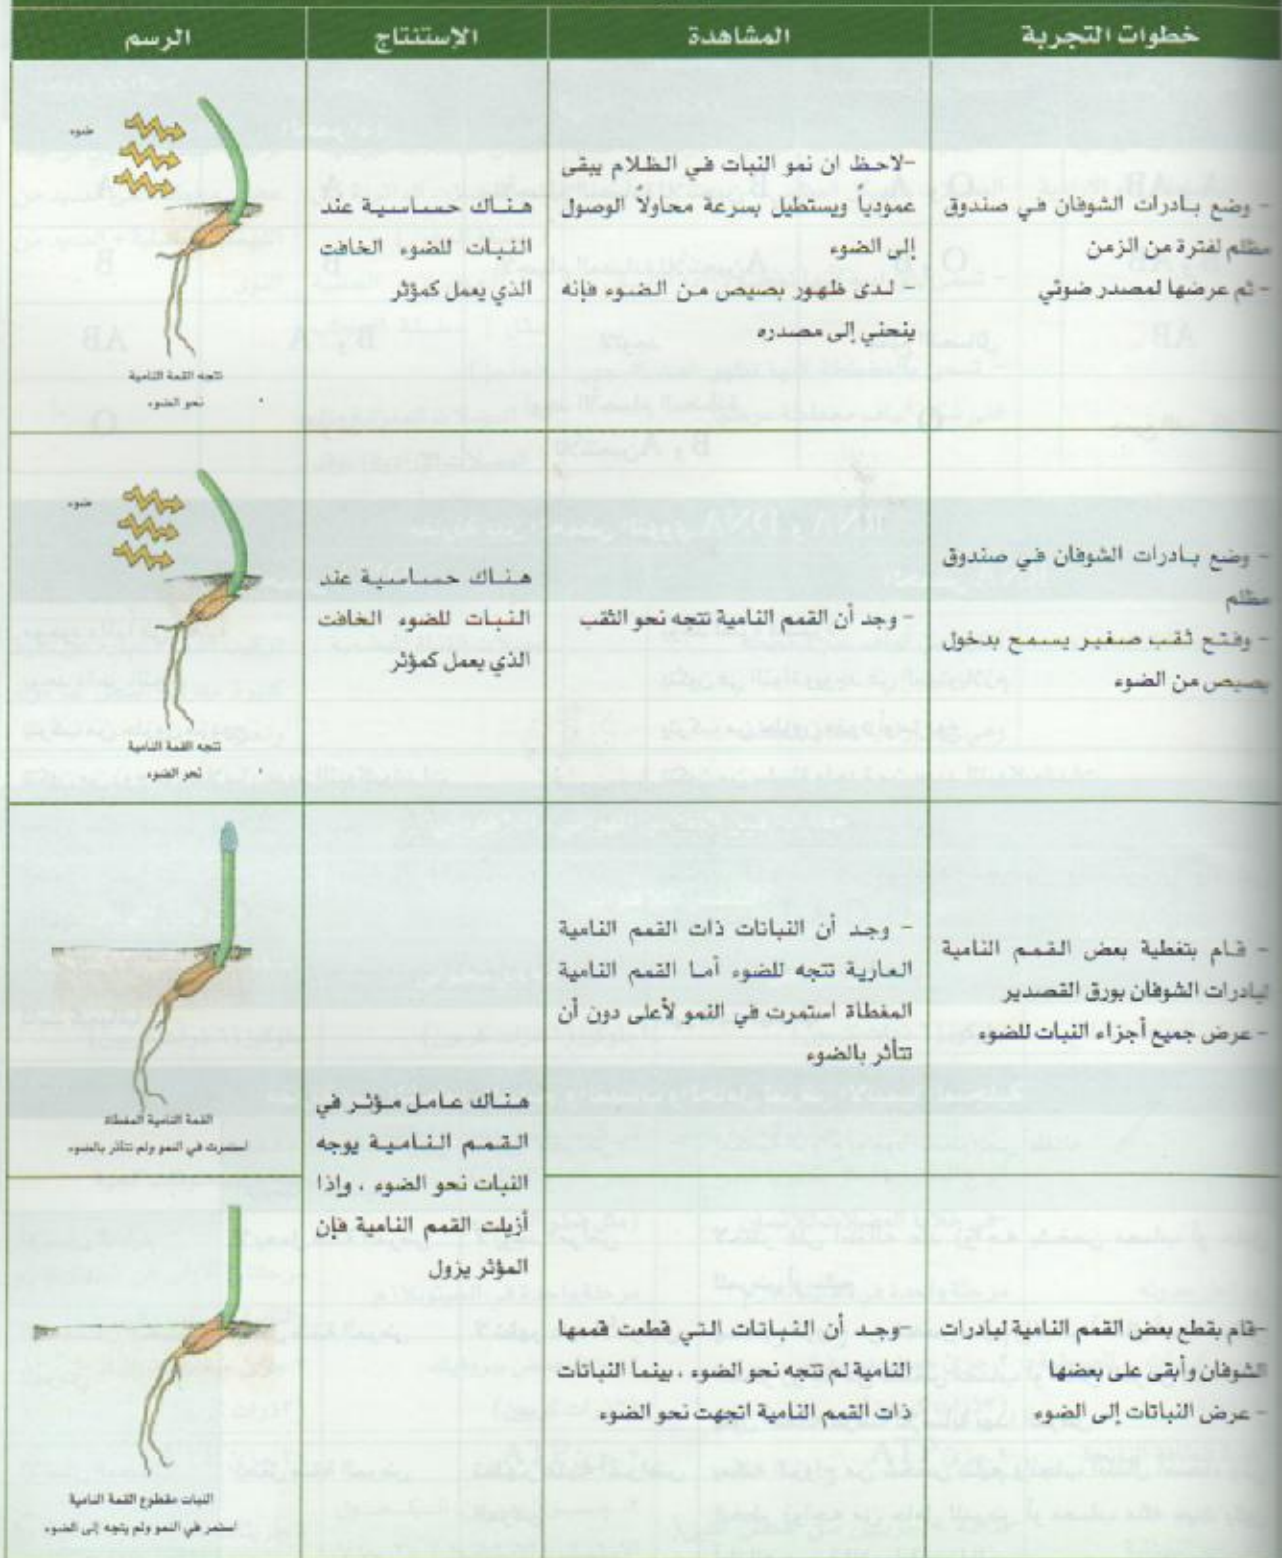 خطوات التجربة
المشاهدة
الإستنتاج
الرسم
- وضع بادرات الشوفان في صندوق
مظلم لفترة من الزمن
- ثم عرضها لمصدر ضوئي
-لاحظ ان نمو النبات في الظلام يبقى
عمودياً ويستطيل بسرعة محاولاً الوصول
إلى الضوء
- لدى ظهور بصيص من الضوء فإنه
ينحني إلى مصدره
هناك حساسية عند
النبات للضوء الخافت
الذي يعمل كمؤثر
ضوء
تتجه القمة النامية
نحو الضوء
- وضع بادرات الشوفان في صندوق
مظلم
- وفتح ثقب صغير يسمح بدخول
بصيص من الضوء
- وجد أن القمم النامية تتجه نحو الثقب
هناك حساسية عند
النبات للضوء الخافت
الذي يعمل كمؤثر
ضوء
تتجه القمة النامية
نحو الضوء
- قام بتغطية بعض القمم النامية
لبادرات الشوفان بورق القصدير
- عرض جميع أجزاء النبات للضوء
- وجد أن النباتات ذات القمم النامية
العارية تتجه للضوء أما القمم النامية
المغطاة استمرت في النمو لأعلى دون أن
تتأثر بالضوء
هناك عامل مؤثر في
القمم النامية يوجه
النبات نحو الضوء ، وإذا
أزيلت القمم النامية فإن
المؤثر يزول
القمة النامية المغطاة
استمرت في النمو ولم تتأثر بالضوء
-قام بقطع بعض القمم النامية لبادرات
الشوفان وأبقى على بعضها
- عرض النباتات إلى الضوء
-وجد أن النباتات التي قطعت قممها
النامية لم تتجه نحو الضوء ، بينما النباتات
ذات القمم النامية اتجهت نحو الضوء
النبات مقطوع القمة النامية
استمر في النمو ولم يتجه إلى الضوء